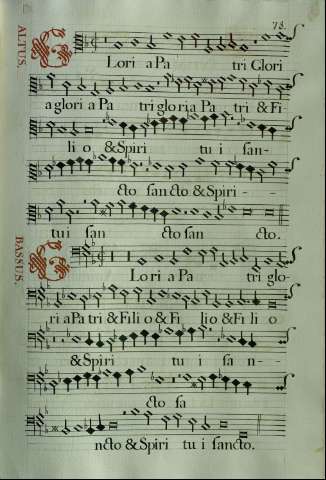 78.
ALTUS.
Lori a Pa tri Glori
a glori a Pa tri gloria Pa tri & Fi
li o & Spiri tu i san-
cto sancto & Spiri - -
tui san cto san cto.
BASSUS.
Lori a Pa tri glo-
ri a Patri & Fili o & Fi lio & Fi li o
& Spiri tu i sa n-
cto sa
ncto & Spiri tu i sancto.